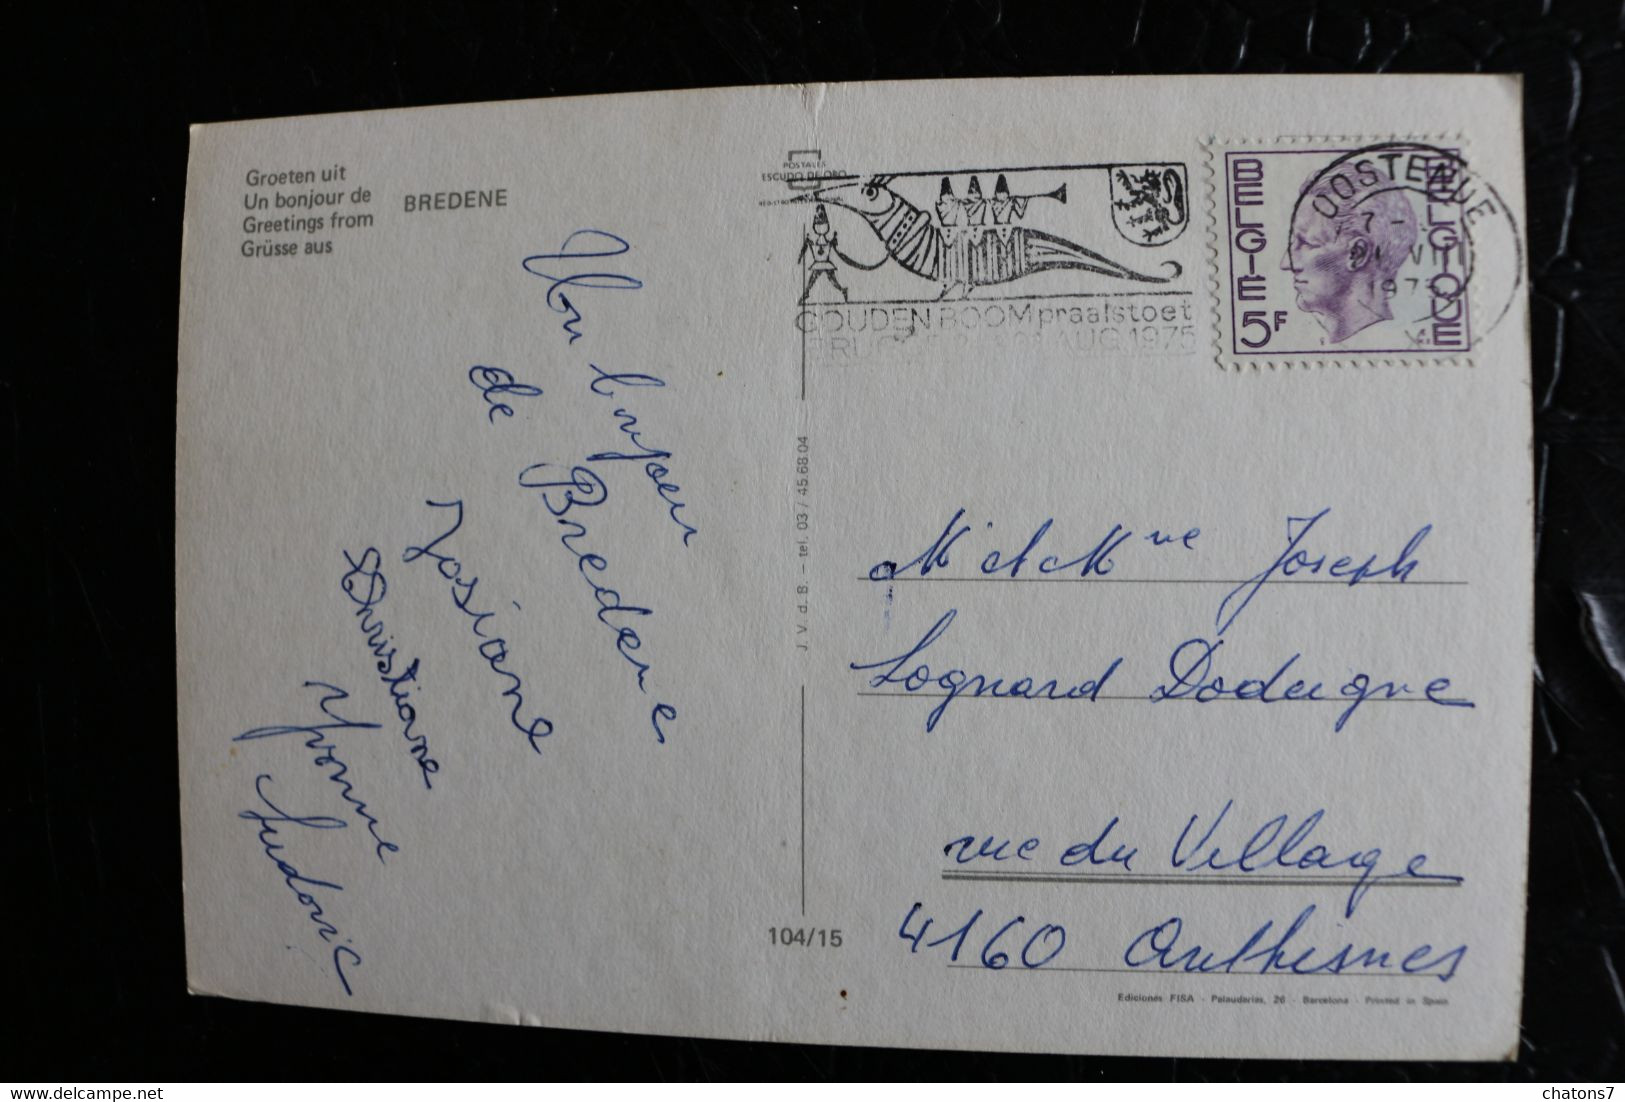 Groeten uit
Un bonjour de
Greetings from
Grüsse aus
BREDENE
Un bonjour
de Bredene
Josiane
Christiane
Yvonne
Ludovic
POSTALES
ESCUDO DE ORO
GOUDEN BOOM praalstoet
AUG. 1975
BELGIE 5F
BELGIQUE
OOSTENDE
J. V. d. B. - tel. 03 / 45.68.04
104/15
M et Mme Joseph
Lognard Dodeigne
rue du Village
4160 Anthisnes
Ediciones FISA - Palaudarias, 26 - Barcelona - Printed in Spain
chatons7